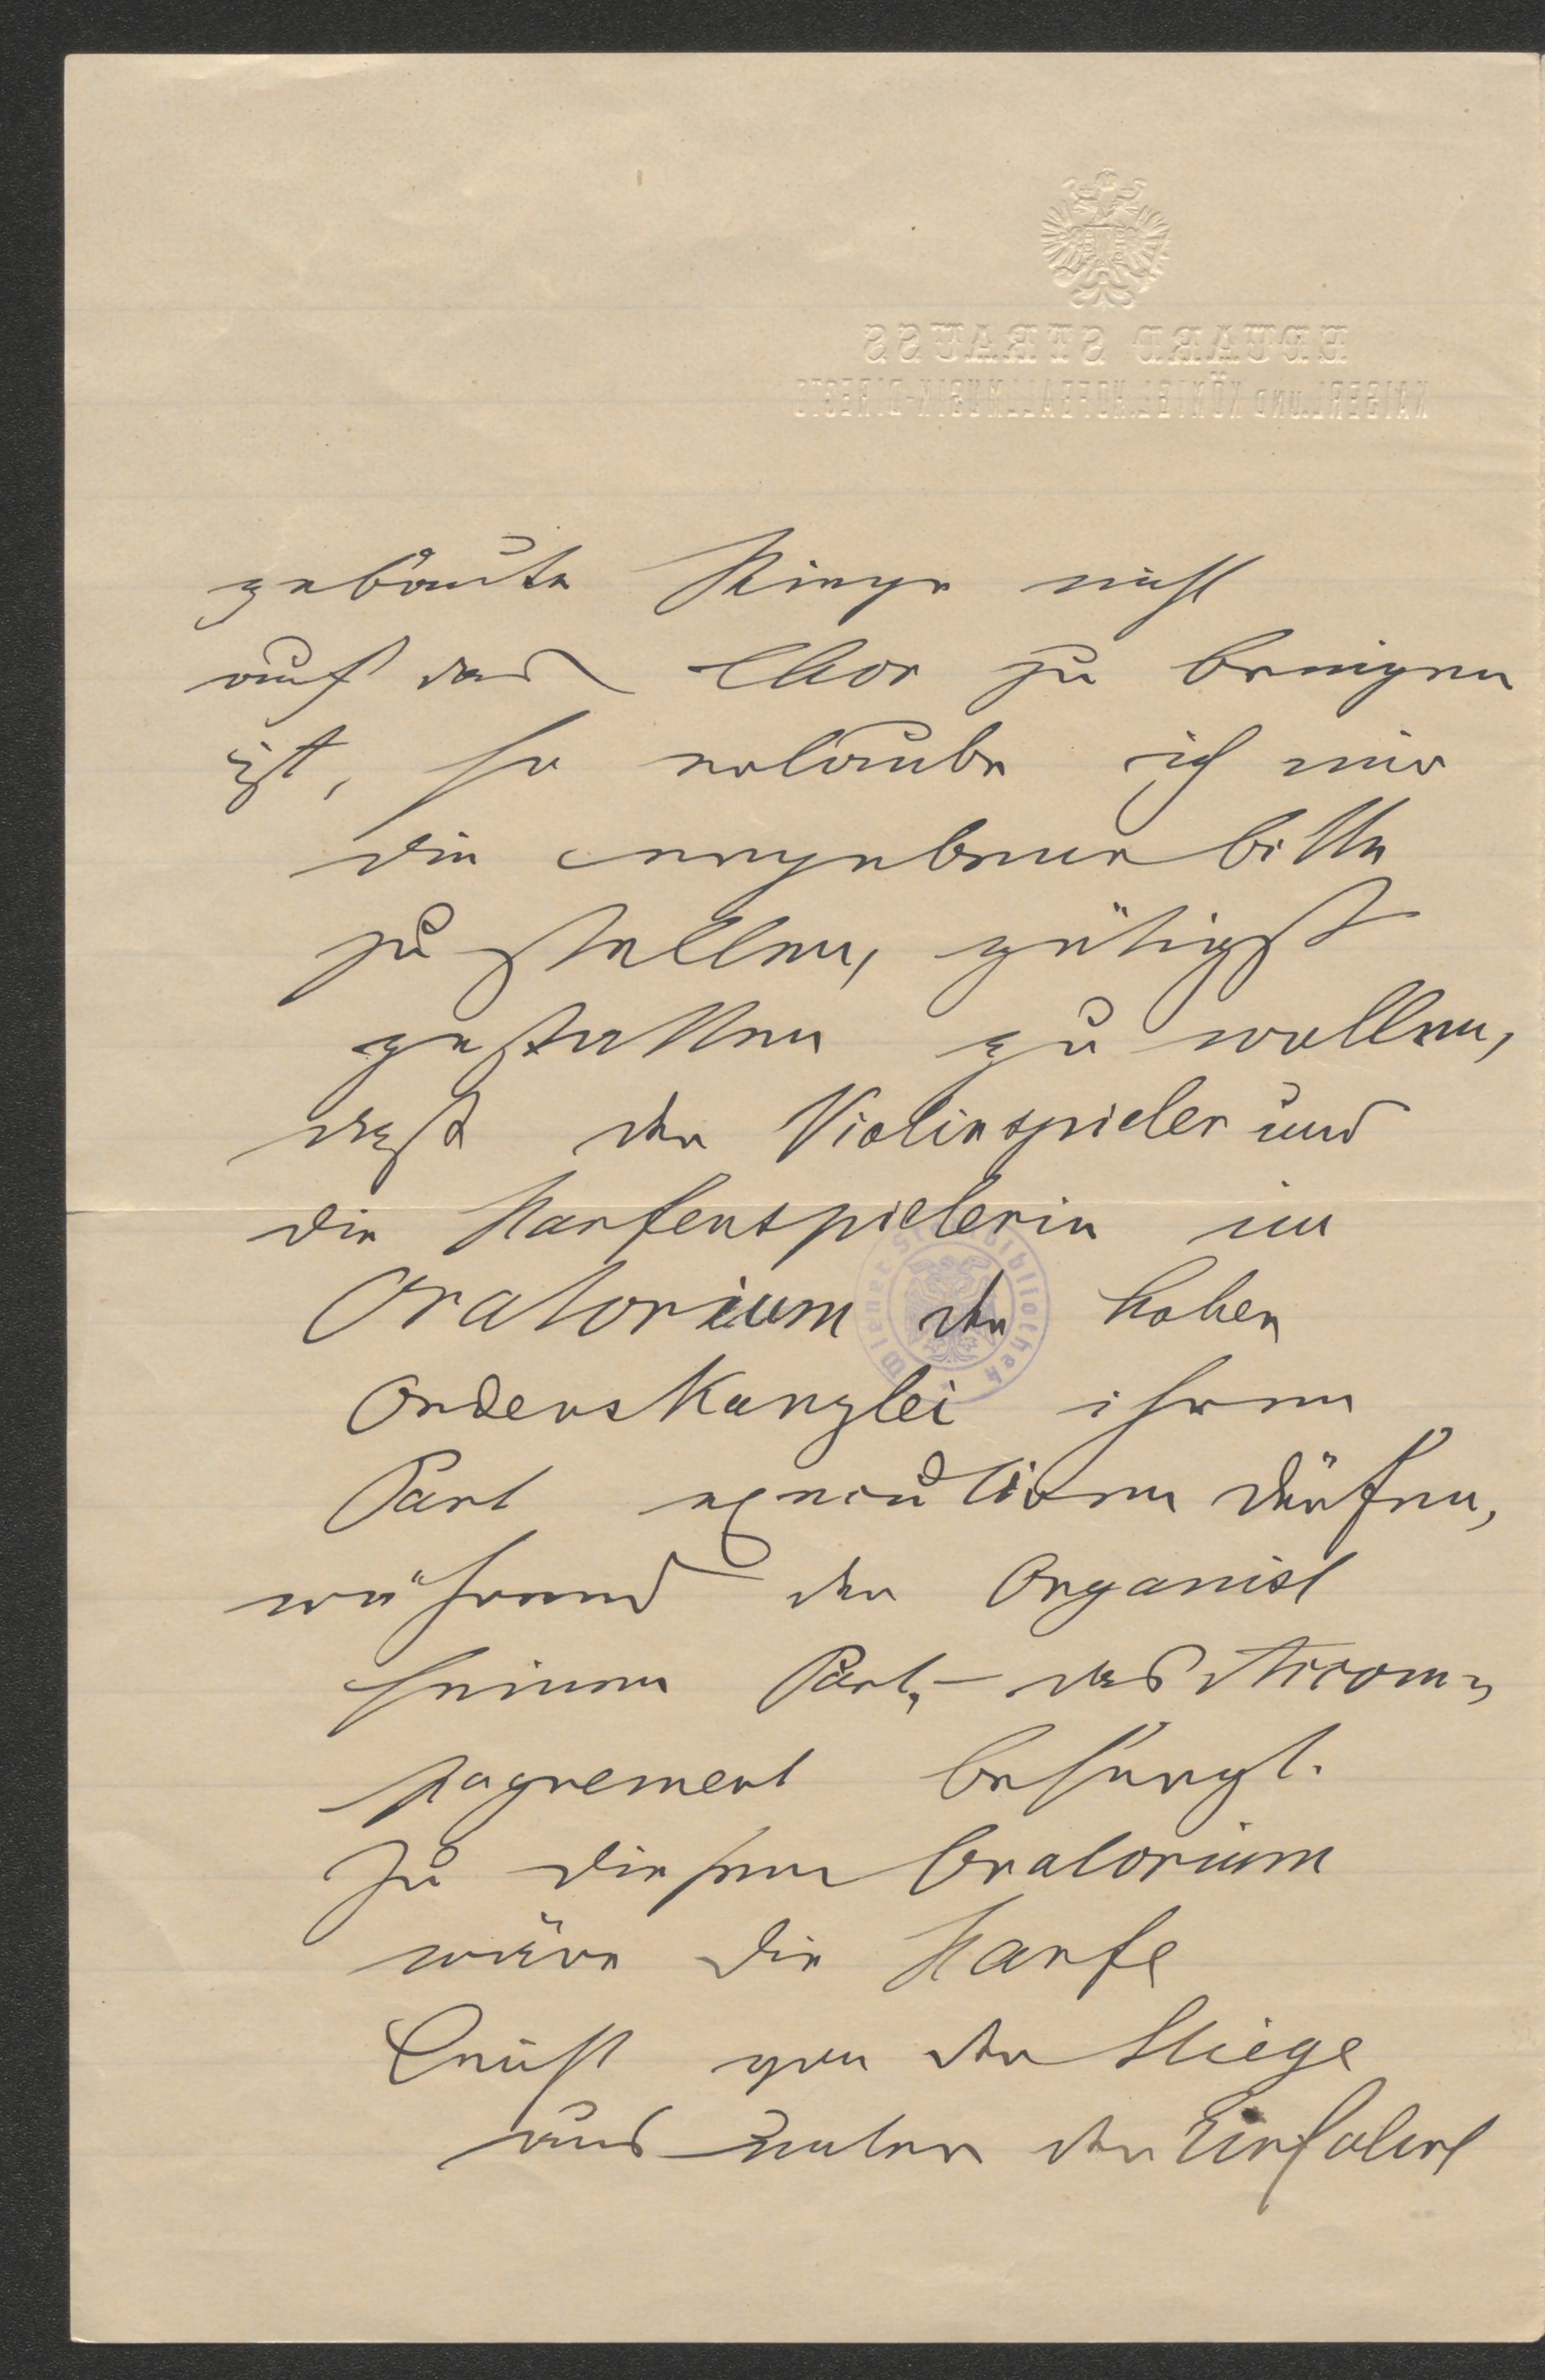 EDUARD STRAUSS
KAISERL. UND KÖNIGL. HOFBALLMUSIK-DIRECTO
gebaute Stiege nicht
auf das Chor zu bringen
ist, so erlaube ich mir
die ergebene bitte
zu stellen, gütigst
gestatten zu wollen,
daß der Violinspieler und
die Harfenspielerin im
Oratorium der hohen
Ordenskanzlei ihren
Part executiren dürfen,
während der Organist
seinen Part, – das Accom-
pagnement besorgt.
Zu diesem Oratorium
wäre die Harfe
leicht von der Stiege
aus unter der Einfahrt
Wiener Stadtbibliothek